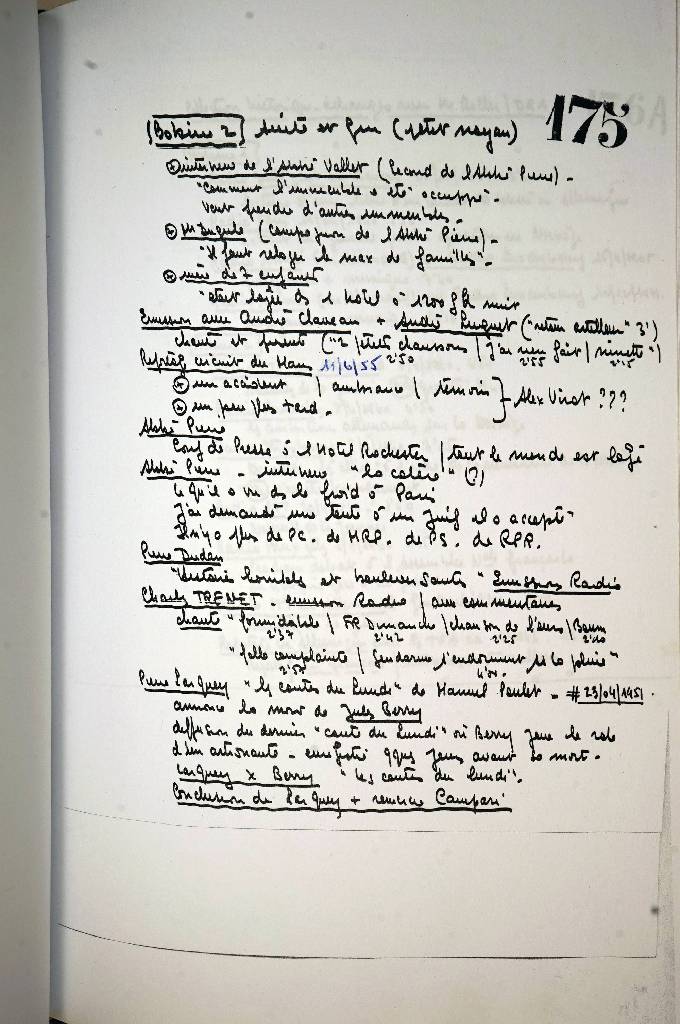 175
(Bobine 2) suite et fin (petit noyau)
* interview de l'Abbé Vallet (second de l'Abbé Pierre) -
"comment l'immeuble a été occuppé" -
veut prendre d'autres immeubles -
* (compagnon de l'Abbé Pierre) -
"Il faut reloger le max de familles" -
* mère de 7 enfants
"était logée ds 1 hôtel à 1200 F la nuit
Emission avec André Claveau + André Luguet ( 3')
chante et présente ("2 petits chaussons / j'ai rien fait / ninette")
2'50 2'55 2'15
Reportg circuit du Mans 11/6/55
* un accident / ambiance / témoins } Alex Virot ???
* un peu plus tard -
Abbé Pierre
Conf de Presse à l Hotel Rochester / tout le monde est logé
Abbé Pierre - interview "la colère" (?)
ce qu'il a vu ds le froid à Paris
J'ai demandé une tente à un Juif il a accepté -
Il n'y a plus de PC. de MRP. de PS. de RPR.
Pierre Dudan
"Histoires horribles et bouleversantes" Emissions Radio
Charles TRENET - emission Radio / avec commentaires
chante "formidable / FR Dimanche / chanson de l'ours / Boum
2'37 2'42 2'25 2'10
"folle complainte / gendarme s'endorment ss la pluie"
2'57
Pierre Larquey "les contes du Lundi" de Manuel Poulet - # 23/04/1951.
annonce la mort de Jules Berry
diffusion du dernier "conte du Lundi" où Berry joue le role
d'un astronaute - enregistré qques jours avant sa mort -
Larquey x Berry "les contes du lundi".
Conclusion de Larquey + remercie Campari